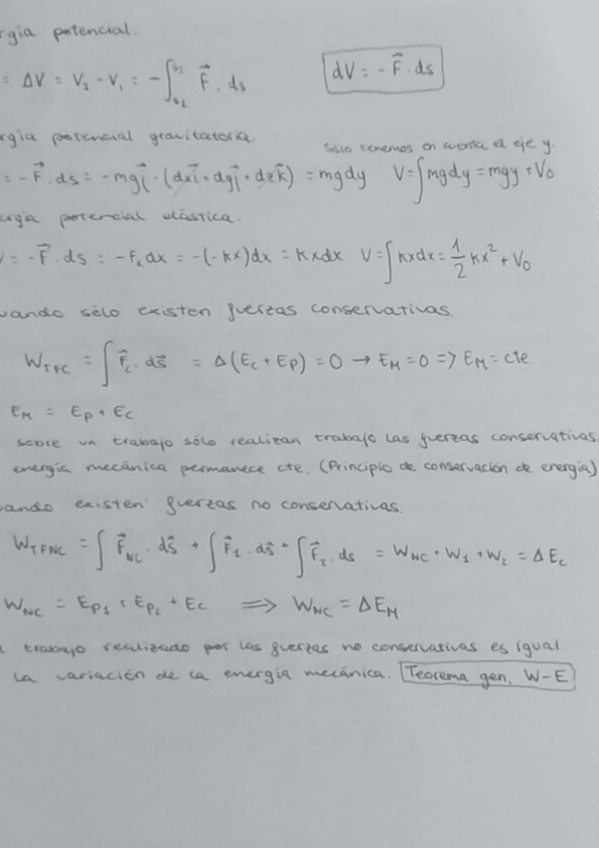 rgía potencial.
= ΔV = V₂ - V₁ = -∫ F⃗ . ds   dV = - F⃗ . ds
rgía potencial gravitatoria.   Sólo tenemos en cuenta el eje y.
= -F⃗ . ds = -mgj⃗ · (dxi⃗ + dyj⃗ + dzk⃗) = mgdy   V = ∫mgdy = mgy + V₀
ergía potencial elástica.
V = -F⃗ . ds = -Fₓ dx = -(-kx)dx = kxdx   V = ∫kxdx = 1/2 kx² + V₀
uando sólo existen fuerzas conservativas.
W_TFC = ∫ F⃗c . ds⃗ = Δ(Ec + Ep) = 0 → EM = 0 => EM = cte.
EM = Ep + Ec
sobre un trabajo sólo realizan trabajo las fuerzas conservativas
energía mecánica permanece cte. (Principio de conservación de energía)
uando existen fuerzas no conservativas.
W_TFNC = ∫ F⃗NC . ds⃗ + ∫ F⃗₁ . ds⃗ + ∫ F⃗₂ . ds = WNC + W₁ + W₂ = ΔEc
WNC = Ep₁ + Ep₂ + Ec ⟹ WNC = ΔEM
l trabajo realizado por las fuerzas no conservativas es igual
la variación de la energía mecánica. Teorema gen. W-E